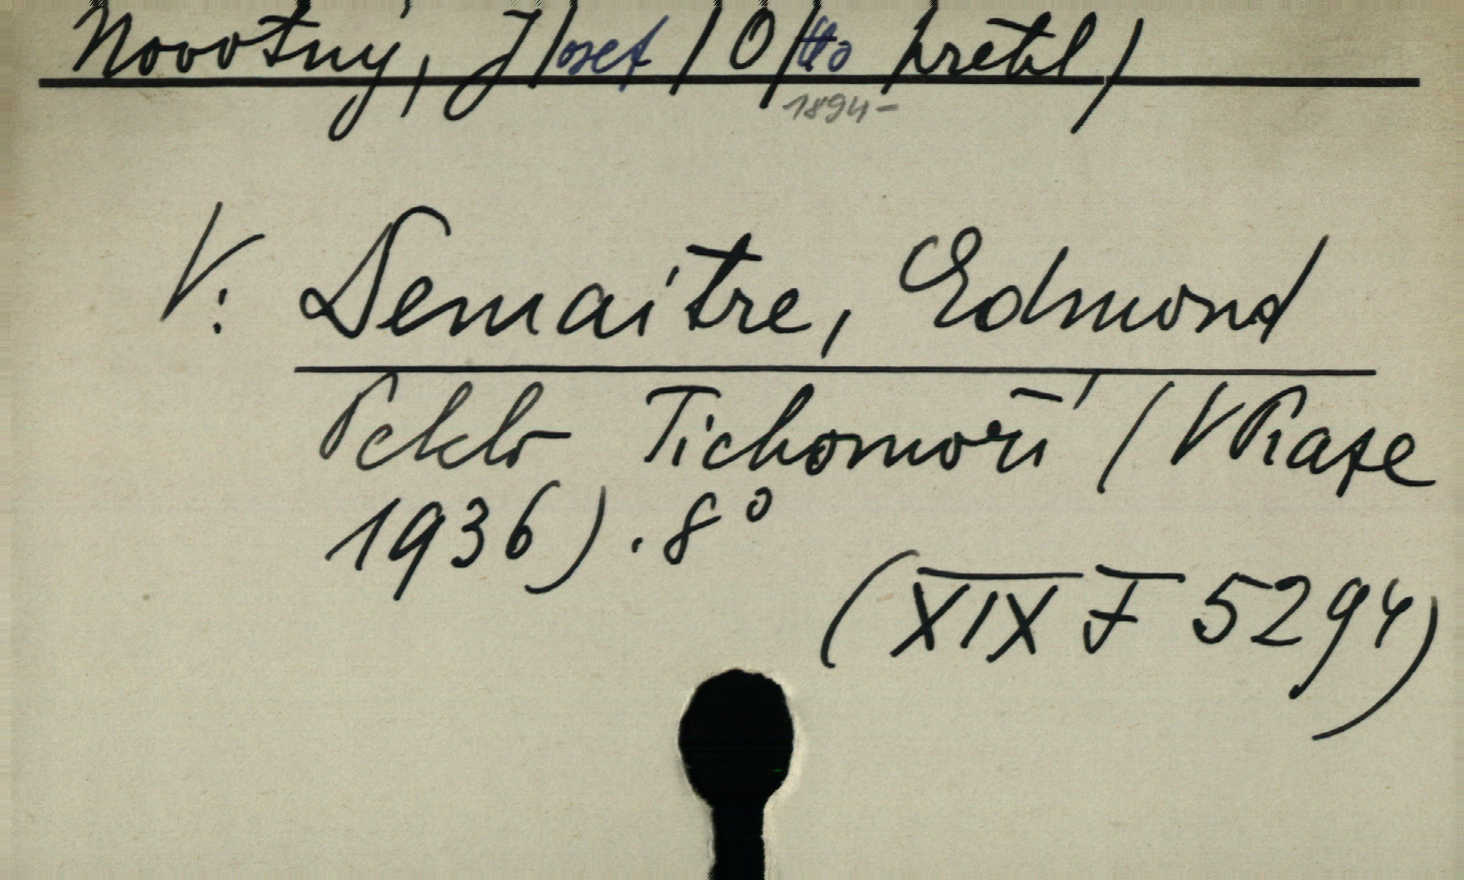 Novotný, J/osef/ O/tto přetil/
1894-
V: Demaitre, Edmond
Peklo Tichomoří (V Praze
1936). 8°
(XIX F 5294)